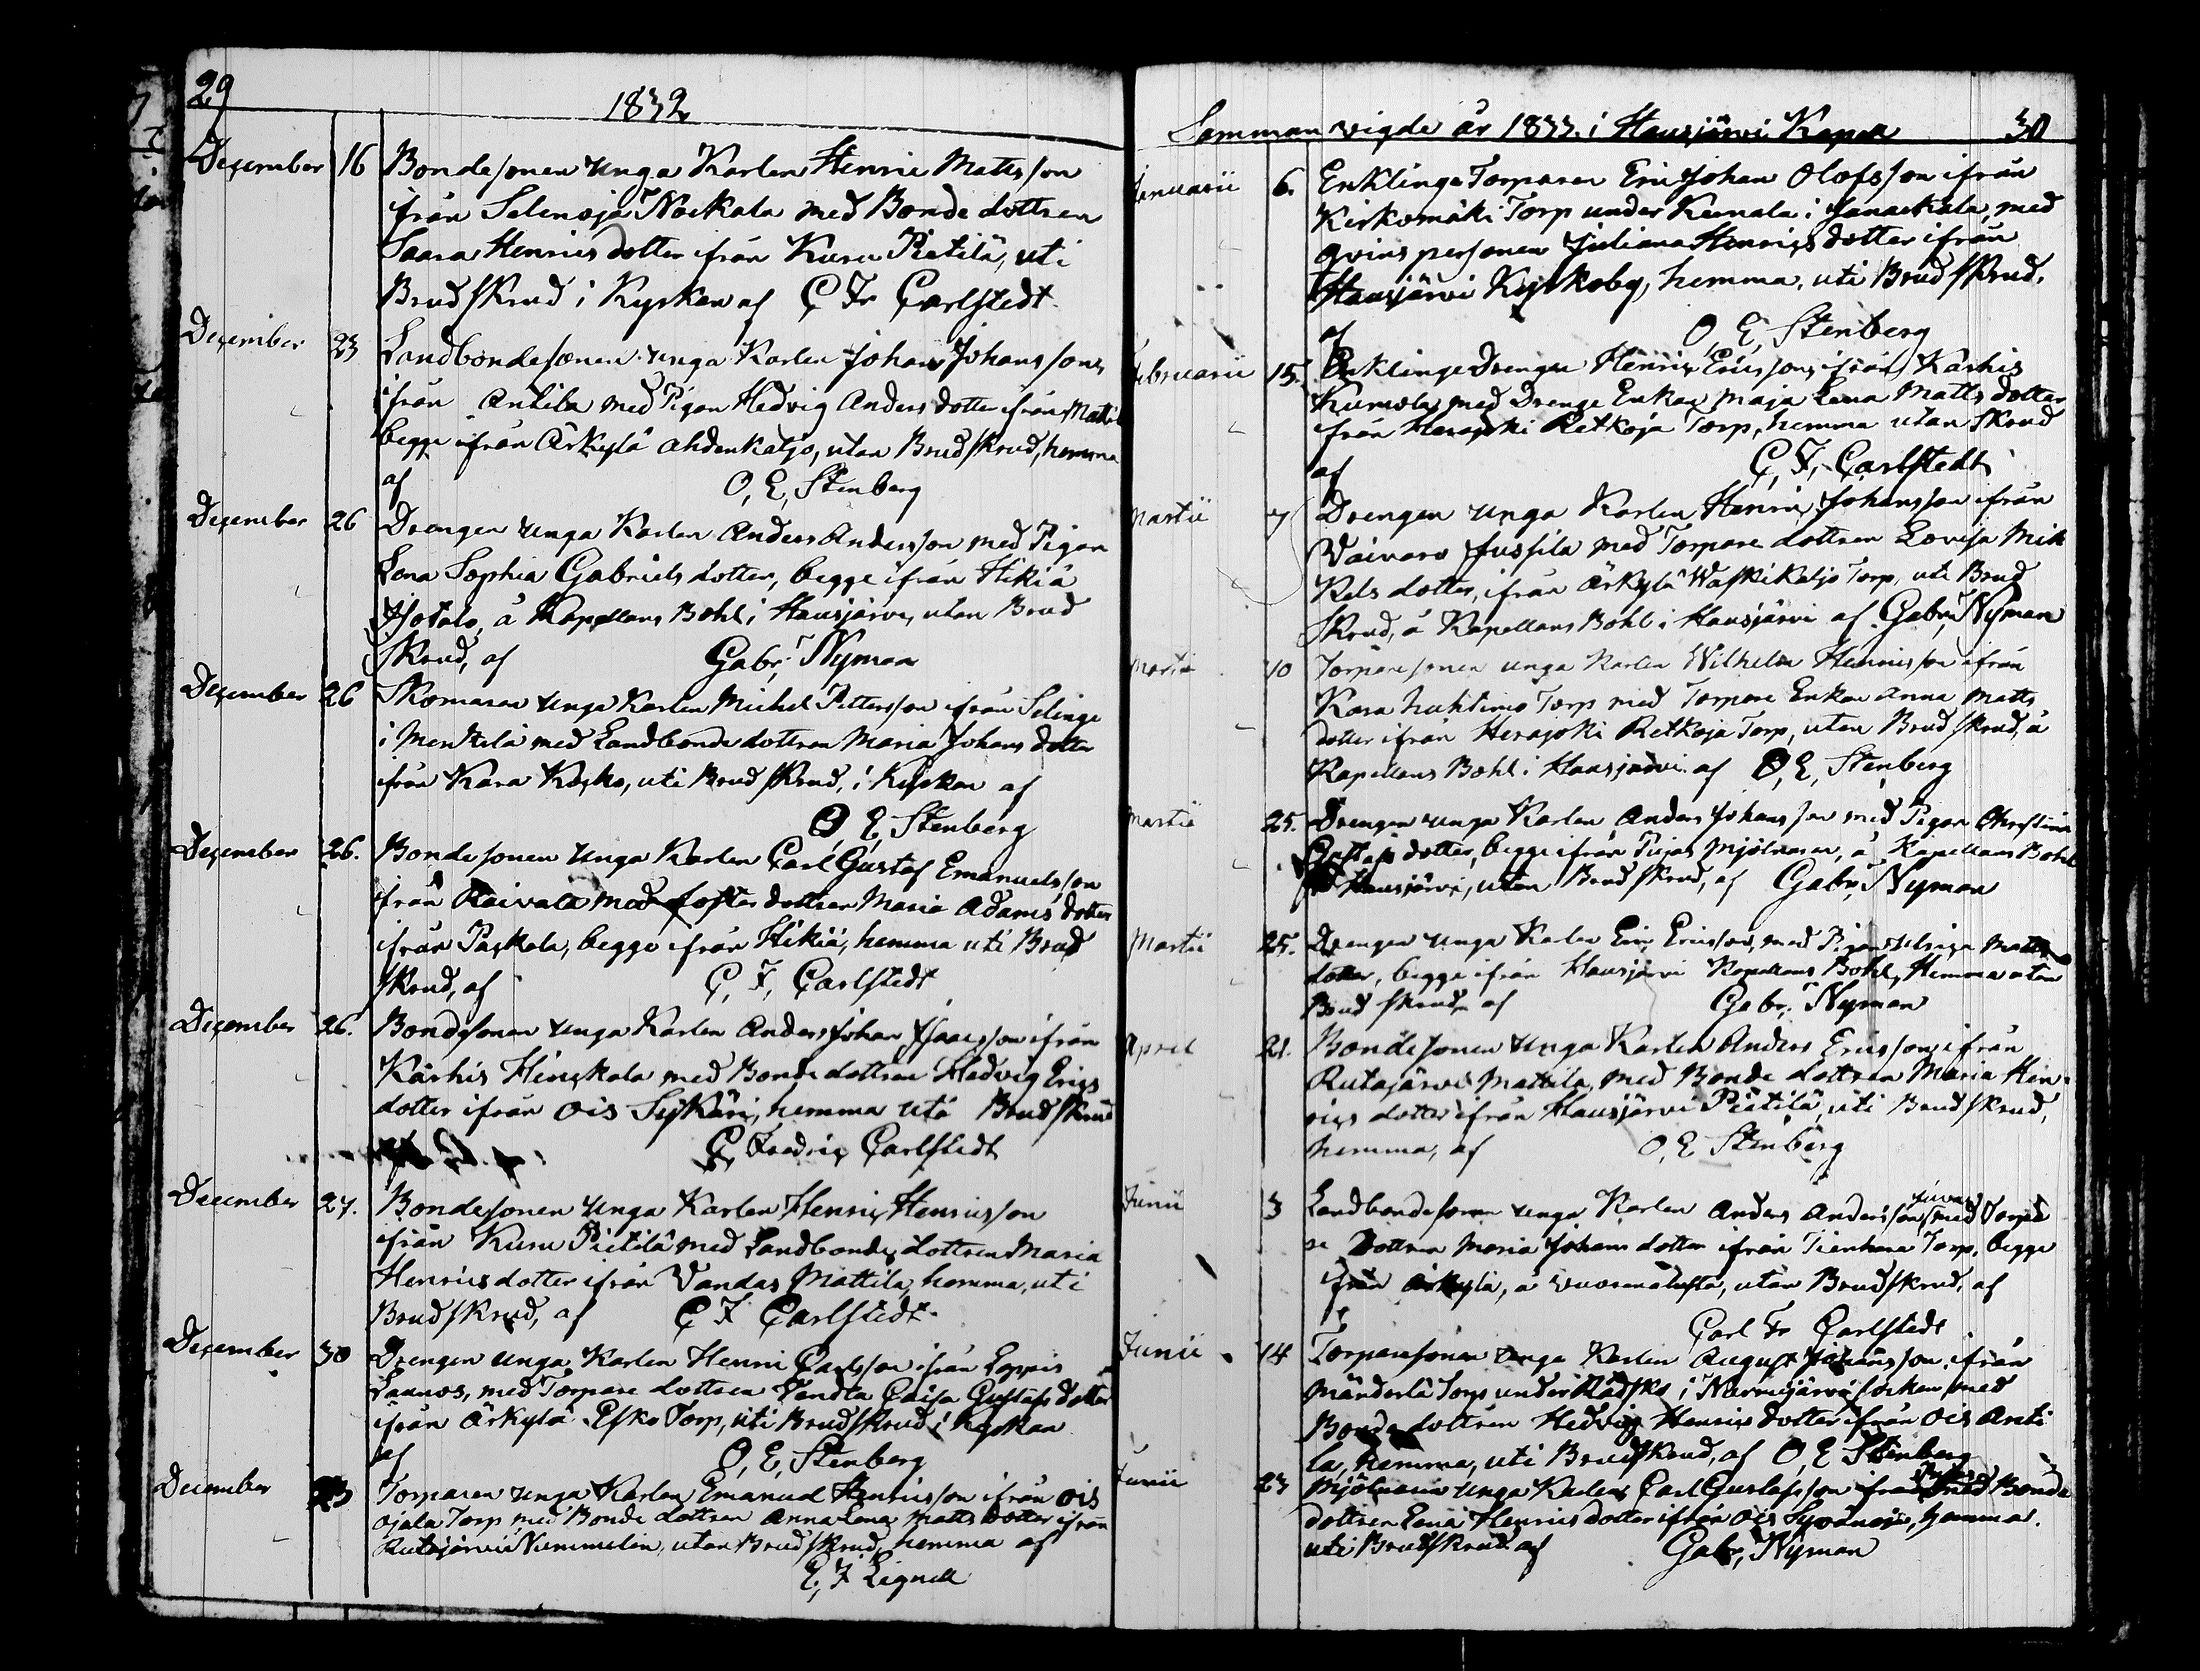 29
1832
December 16 Bondesonen unga Karlen Henric Mattsson
ifrån Selenoja Nockala med Bonde dottren
Saara Henricsdotter ifrån Kuru Pietilä, uti
Brudskrud i Kyrkan af C Fr Carlstedt
December 23 Landbondesonen unga Karlen Johan Johansson,
ifrån Antila med Pigan Hedvig Anders dotter ifrån
begge ifrån Ärkylä ahdenkaljo, utan Brudskrud, hemma
af O, E, Stenberg
December 26 Drengen unga Karlen Anders Andersson med Pigan
Lena Sophia Gabriels dotter, begge ifrån Hikiä
å Kapellans Bohl i Hausjärvi, utan Brud
skrud, af Gabr: Nyman
December 26 Skomaren unga Karlen Michel Pettersson ifrån Selinge
i Menkelä med Landbonde dottren Maria Johans dotter
ifrån Kara Kosko, uti Brudskrud, i Kyrkan af
O, E, Stenberg
December 26. Bondesonen unga Karlen Carl Gustaf Emanuelsson
ifrån Raivala med foster dottren Maria Adams dotter
ifrån Paskala, begge ifrån Hikiä, hemma uti Brud
skrud, af C, F, Carlstedt
December 26. Bondesonen unga Karlen Anders Johan Isaacsson ifrån
Karhis Hinskala med Bonde dottren Hedvig Erics
dotter ifrån Ois Sykäri, hemma uti Brudskrud
C, Fredric Carlstedt
December 27. Bondesonen unga Karlen Henric Henricsson
ifrån Kuru Pietilä med Landbonde dottren Maria
Henricsdotter ifrån Vandas Mattila, hemma, uti
Brudskrud, af C F Carlstedt
December 30 Drengen unga Karlen Henric Carlsson ifrån Loppis
Launos, med Torpare dottren Vendla Caisa Gustafs dotter
ifrån Ärkylä Esko Torp, uti Brudskrud i Kyrkan
af O, E, Stenberg
December 23 Torparen unga Karlen Emanuel Henricsson ifrån Ois
Ojala Torp med Bonde dottren Anna Lena Matts dotter ifrån
Rutajärvi Nummelin, utan Brudskrud, hemma af
E, F Lignell
Samman vigde år 1833. i Hausjärvi Kapell 30
Januarii 6. Enklinge Torparen Eric Johan Olofsson ifrån
Kirkomäki Torp under Kernala i Janackala, med
qvins personen Juliana Henrics dotter ifrån
Hausjärvi Kyrkoby, hemma, uti Brudskrud.
af O, E, Stenberg
Februarii 15. Enklinge Drengen Henric Ericsson, ifrån Karhis
Kumola med Drenge Enkan Maja Lena Matts dotter
ifrån Herajoki Retkoja Torp, hemma utan Skrud
af C, F, Carlstedt
Martii 7 Drengen unga Karlen Henric Johansson ifrån
Vaivaro Jussila med Torpare dottren Lovisa Mik
kels dotter, ifrån Ärkylä Waskikaljo Torp, uti Brud
skrud, å Kapellans Bohl i Hausjärvi af Gabr; Nyman
Martii 10 Torparesonen unga Karlen Wilhelm Henricsson ifrån
Kara huhtimo Torp med Torpare Enkan Anna Matts
dotter ifrån Herajoki Retkoja Torp, utan Brudskrud, å
Kapellans Bohl i Hausjärvi af O, E, Stenberg
Martii 25. Drengen unga Karlen Anders Johansson med Pigan Christina
Gustafs dotter, begge ifrån Pujas Mjölnaren, å Kapellans Bohl
Hausjärvi, utan Brudskrud, af Gabr, Nyman
Martii 25. Drengen unga Karlen Eric Ericsson, med Pigan Matts
dotter, begge ifrån Hausjärvi Kapellans Bohl, Hemma utan
Brud skrud af Gabr; Nyman
April 21. Bondesonen unga Karlen Anders Ericsson ifrån
Rutajärvi Mattila, med Bonde dottren Maria Hen-
rics dotter ifrån Hausjärvi Pietilä, uti Brudskrud,
hemma, af O, E Stenberg
Junii 3 Landbondesonen unga Karlen Anders Andersson, med Torpa
re Dottren Maria Johans dotter ifrån Tienhara Torp, begge
ifrån Ärkylä, å utan Brudskrud, af
Carl Fr Carlstedt
Junii 14 Torparesonen unga Karlen August Johansson ifrån
Mänderlä Torp under Rådsko, i Nurmijärvi socken med
Bonde dottren Hedvig Henrics dotter ifrån Ois Anti
la, hemma, uti Brudskrud, af O, E Stenberg
Junii 23 Mjölnaren unga Karlen Carl Gustafsson ifrån med Bonde
dottren Lena Henrics dotter ifrån Ois Syvänoja, hemma.
uti Brudskrud af Gabr, Nyman